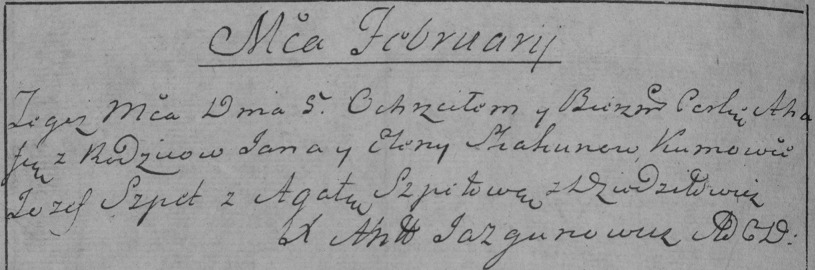 Mča February
Tegoż Mča Dnia 5. Ochrzciłem y Bierzm Corkę Aha
fię z Rodzicow Jana y Eleny Skakunow, Kumowie
Jozef Szpet z Agatą Szpetową z Dziedziłowicz
X Jazgunowicz